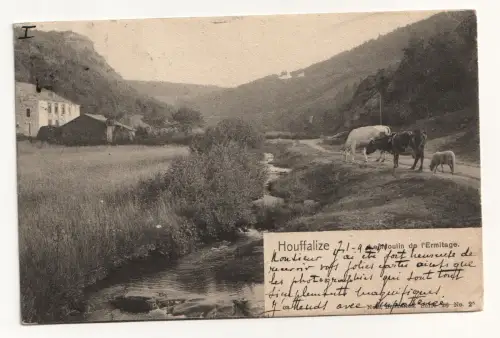 I
Houffalize 21-9 Le Moulin de l'Ermitage.
Monsieur j'ai été fort heureuse de
recevoir vos jolies cartes ainsi que
les photographies qui sont tout
simplement magnifiques
J'attends avec impatience